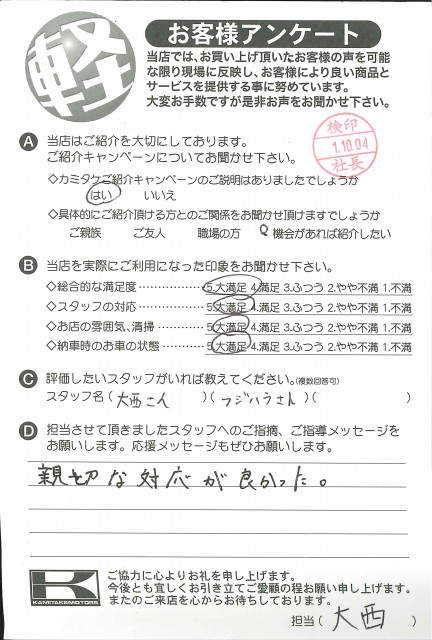 軽
お客様アンケート
当店では、お買い上げ頂いたお客様の声を可能
な限り現場に反映し、お客様により良い商品と
サービスを提供する事に努めています。
大変お手数ですが是非お声をお聞かせ下さい。
検印
1.10.04
社長
A 当店はご紹介を大切にしております。
ご紹介キャンペーンについてお聞かせ下さい。
◇カミタケご紹介キャンペーンのご説明はありましたでしょうか
はい いいえ
◇具体的にご紹介頂ける方とのご関係をお聞かせ頂けますでしょうか
ご親族 ご友人 職場の方 機会があれば紹介したい
B 当店を実際にご利用になった印象をお聞かせ下さい。
◇総合的な満足度……………… 5.大満足 4.満足 3.ふつう 2.やや不満 1.不満
◇スタッフの対応……………… 5.大満足 4.満足 3.ふつう 2.やや不満 1.不満
◇お店の雰囲気、清掃………… 5.大満足 4.満足 3.ふつう 2.やや不満 1.不満
◇納車時のお車の状態………… 5.大満足 4.満足 3.ふつう 2.やや不満 1.不満
C 評価したいスタッフがいれば教えてください。(複数回答可)
スタッフ名(大西さん)(フジハラさん)( )
D 担当させて頂きましたスタッフへのご指摘、ご指導メッセージを
お願いします。応援メッセージもぜひお願いします。
親切な対応が良かった。
K
KAMITAKEMOTORS
ご協力に心よりお礼を申し上げます。
今後とも宜しくお引き立てご愛顧の程お願い申し上げます。
またのご来店を心からお待ちしております。
担当(大西)